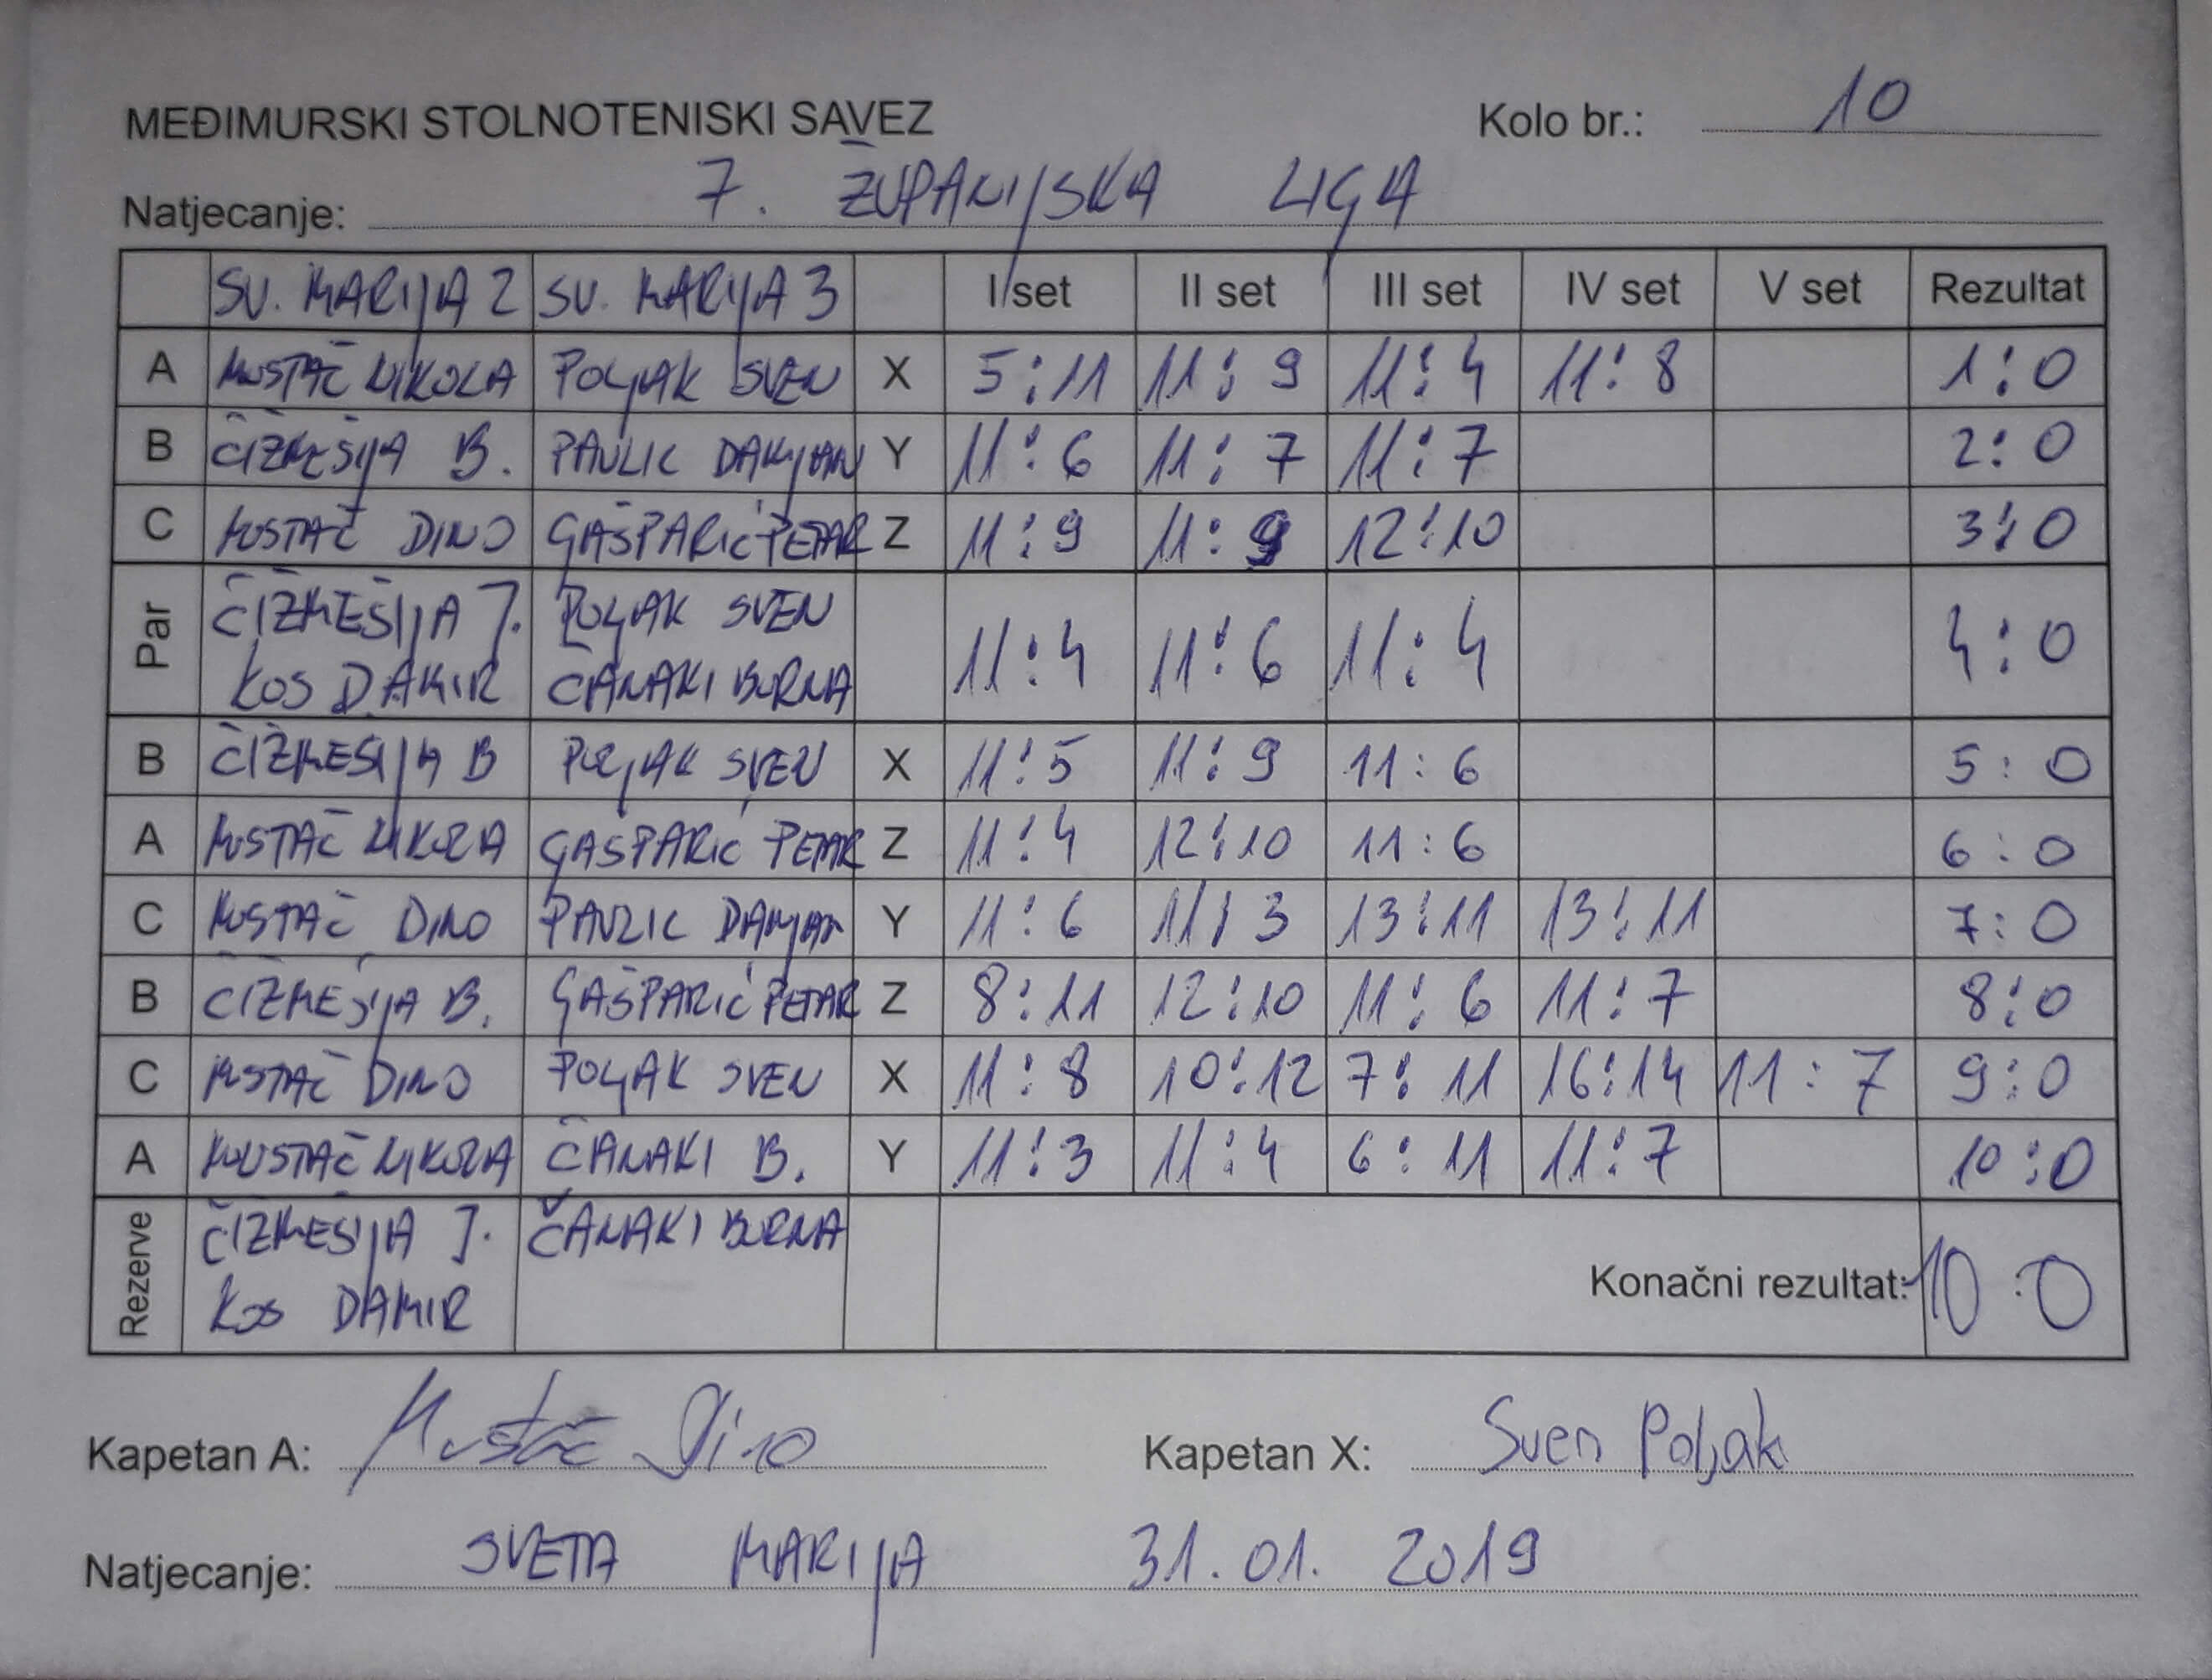 MEĐIMURSKI STOLNOTENISKI SAVEZ Kolo br.: 10
Natjecanje: 7. ŽUPANIJSKA LIGA
SV. MARIJA 2 SV. MARIJA 3 I set II set III set IV set V set Rezultat
A MUSTAČ NIKOLA POLJAK SVEN X 5:11 11:9 11:4 11:8 1:0
B ČIŽMEŠIJA B. PAVLIC DAMJAN Y 11:6 11:7 11:7 2:0
C MUSTAČ DINO GAŠPARIĆ PETAR Z 11:9 11:9 12:10 3:0
Par ČIŽMEŠIJA J. POLJAK SVEN 11:4 11:6 11:4 4:0
KOS DAMIR ČANAKI BORNA
B ČIŽMEŠIJA B POLJAK SVEN X 11:5 11:9 11:6 5:0
A MUSTAČ NIKOLA GAŠPARIĆ PETAR Z 11:4 12:10 11:6 6:0
C MUSTAČ DINO PAVLIC DAMJAN Y 11:6 11:3 13:11 13:11 7:0
B ČIŽMEŠIJA B. GAŠPARIĆ PETAR Z 8:11 12:10 11:6 11:7 8:0
C MUSTAČ DINO POLJAK SVEN X 11:8 10:12 7:11 16:14 11:7 9:0
A MOUSTAČ NIKOLA ČANAKI B. Y 11:3 11:4 6:11 11:7 10:0
Rezerve ČIŽMEŠIJA J. ČANAKI BORNA
KOS DAMIR Konačni rezultat: 10:0
Kapetan A: Mustač Dino Kapetan X: Sven Poljak
Natjecanje: SVETA MARIJA 31.01.2019